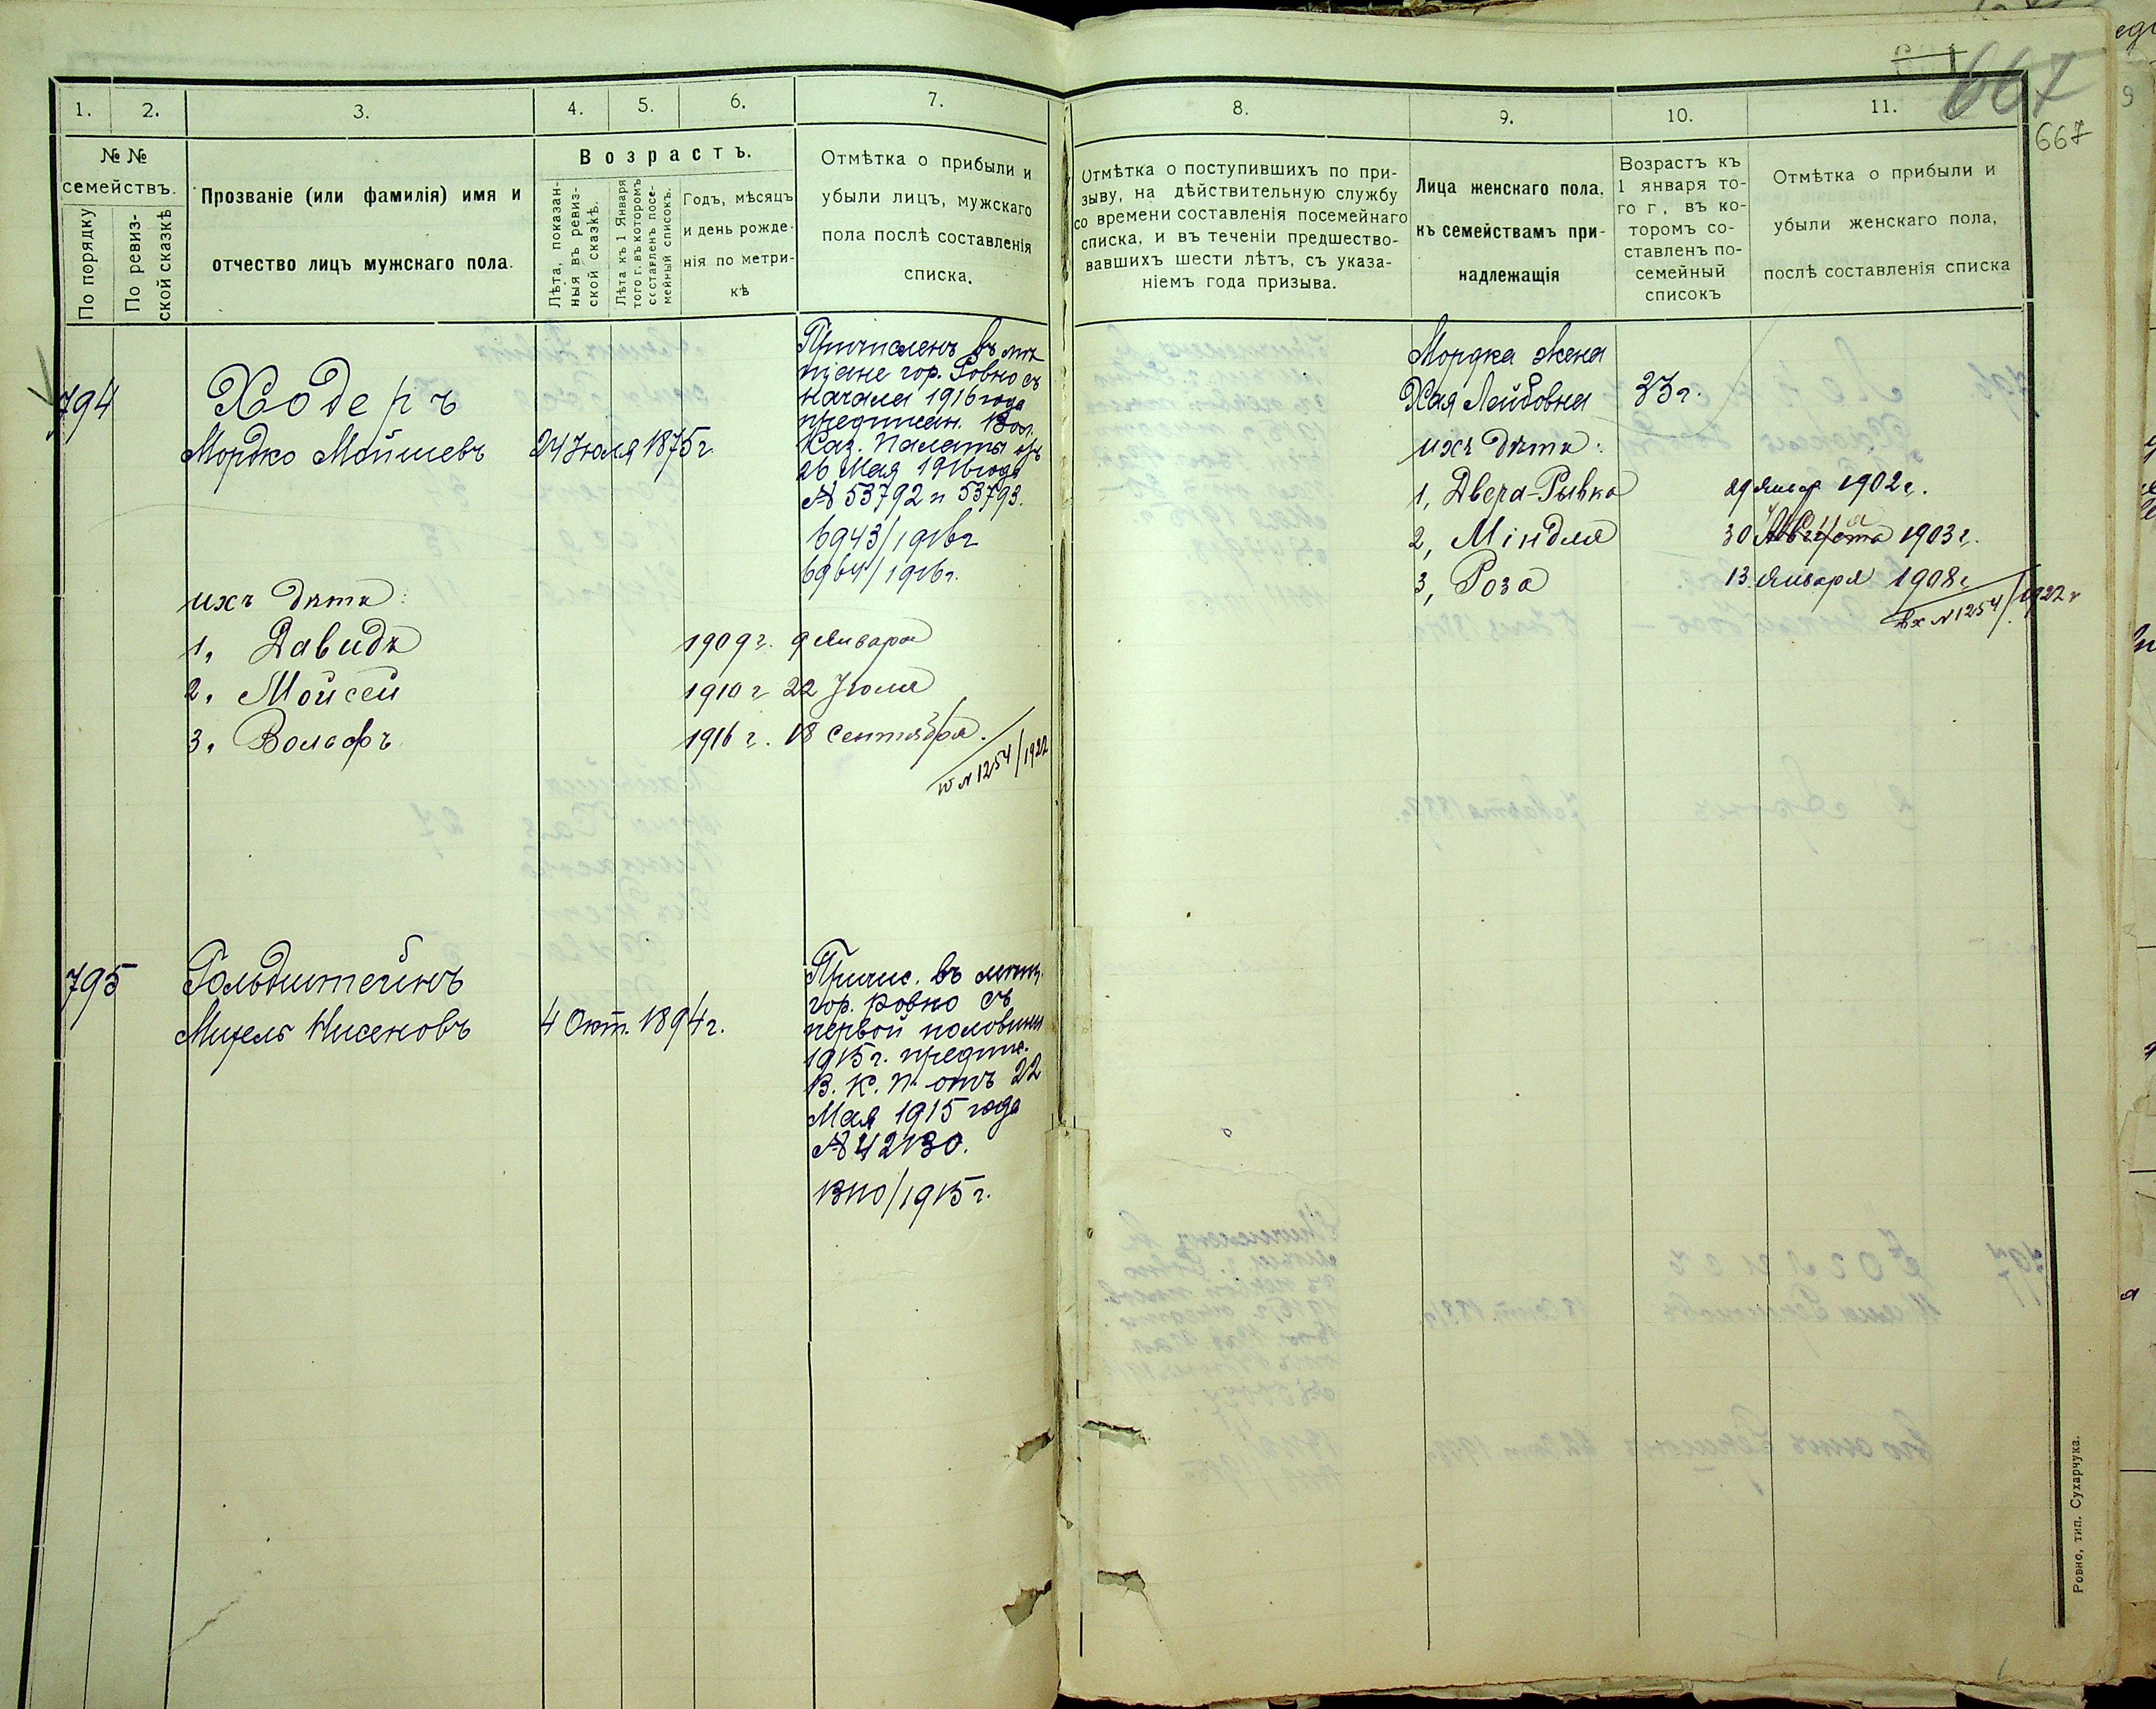 667
667
1.
2.
3.
4.
5.
6.
7.
8.
9.
10.
11.
№ №
семействъ.
По порядку
По ревиз-
ской сказкѣ
Прозваніе (или фамилія) имя и
отчество лицъ мужскаго пола.
Возрастъ.
Лѣта, показан-
ныя въ ревиз-
ской сказкѣ.
Лѣта къ 1 Января
того г. въ которомъ
составленъ посе-
мейный списокъ.
Годъ, мѣсяцъ
и день рожде-
нія по метри-
кѣ
Отмѣтка о прибыли и
убыли лицъ, мужскаго
пола послѣ составленія
списка.
Отмѣтка о поступившихъ по при-
зыву, на дѣйствительную службу
со времени составленія посемейнаго
списка, и въ теченіи предшество-
вавшихъ шести лѣтъ, съ указа-
ніемъ года призыва.
Лица женскаго пола,
къ семействамъ при-
надлежащія
Возрастъ къ
1 января то-
го г, въ ко-
торомъ со-
ставленъ по-
семейный
списокъ
Отмѣтка о прибыли и
убыли женскаго пола,
послѣ составленія списка
794
Ходеръ
Мордко Мойшевъ
24 Іюля 1875 г.
Причисленъ въ мѣ
щане гор. Ровно съ
начала 1916 года
предписан. Вол.
Каз. Палаты отъ
26 Мая 1916 года
№ 53792 и 53793.
6943/1916 г
6964/1916 г.
ихъ дѣти:
1, Давидъ 1909 г. 9 Января
2, Мойсей 1910 г 22 Іюля
3, Вольфъ 1916 г. 18 Сентября.
№ 1254/1922
Мордка жена
Хая Лейбовна 33 г.
ихъ дѣти:
1, Двера-Рывка 29 Январ 1902 г.
2, Міндля 30 Августа 1903 г.
3, Роза 13 Января 1908 г
вх № 1254/1922 г
795
Гольдштейнъ
Мицель Нисеновъ
4 Окт. 1894 г.
Причис. въ мѣщ.
гор. Ровно съ
первой половины
1915 г. предпис.
В. К. П. отъ 22
Мая 1915 года
№ 42130.
/1915 г.
Ровно, тип. Сухарчука.